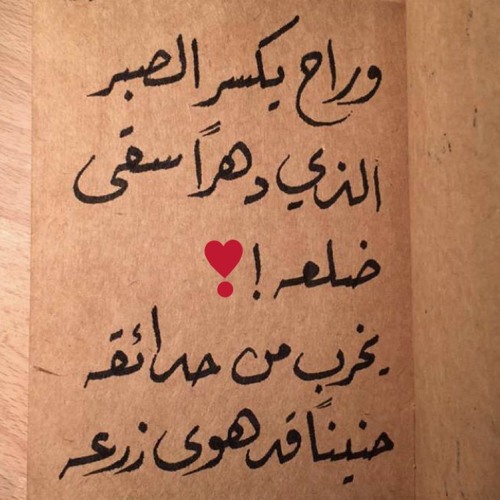 وراح يكسر الصبر
الذي دهراً سقى
ضلعه !❣
يخرب من حدائقه
حنيناً قد هوى زرعه